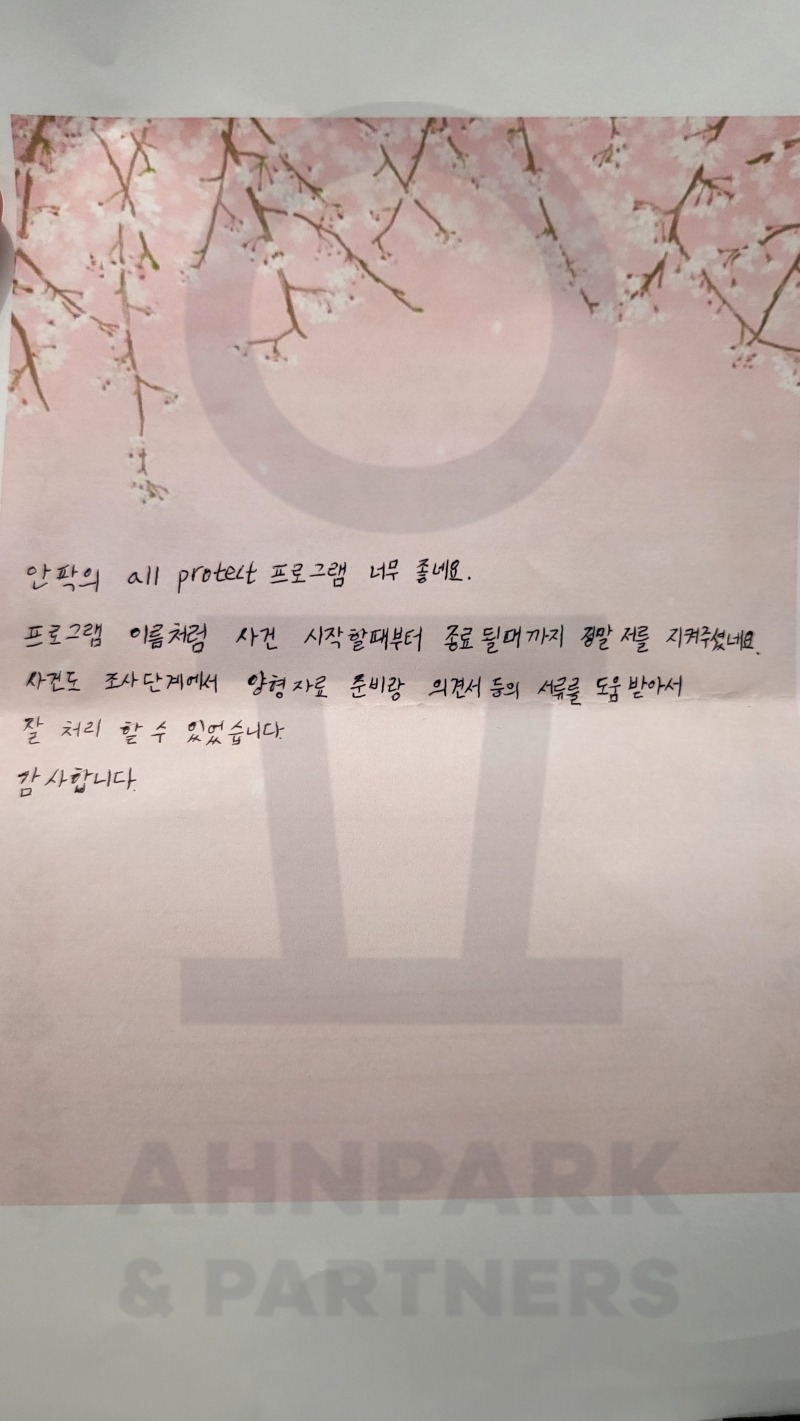 안팍의 all protect 프로그램 너무 좋네요.
프로그램 이름처럼 사건 시작할때부터 종료될때까지 정말 저를 지켜주셨네요.
사건도 조사단계에서 양형자료 준비랑 의견서 등의 서류를 도움 받아서
잘 처리 할 수 있었습니다.
감사합니다.
AHNPARK
& PARTNERS